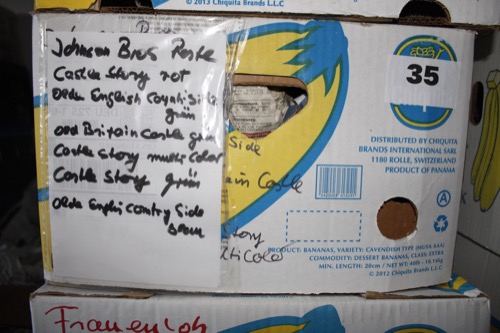 © 2013 Chiquita Brands L.L.C
Johnson Bros
Castle Story rot
Olde English Countri Side
grün
old Britain Castle grün
Castle Story multi Color
Castle Story grün
olde Englisch Country Side
braun
35
Side
ain Castle
Story
lticolor
DISTRIBUTED BY CHIQUITA
BRANDS INTERNATIONAL SARL
1180 ROLLE, SWITZERLAND
PRODUCT OF PANAMA
A
PRODUCT: BANANAS, VARIETY: CAVENDISH TYPE (MUSA AAA)
COMMODITY: DESSERT BANANAS, CLASS: EXTRA
MIN. LENGTH: 20cm / NET WT: 40lb - 18.14Kg
© 2012 Chiquita Brands L.L.C
Frauenlob